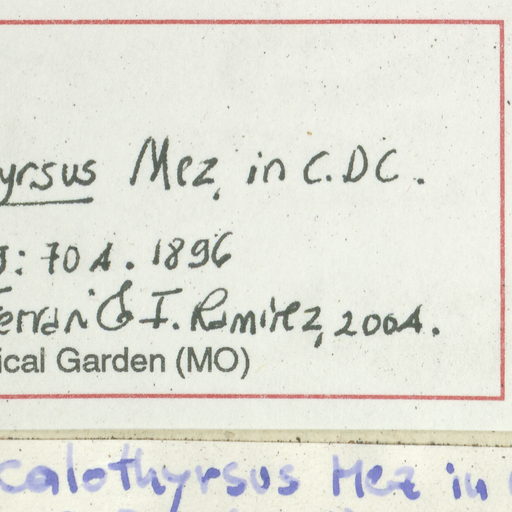 yrsus Mez, in C.DC.
: 704. 1896
Ferrari & I. Ramirez, 2004.
ical Garden (MO)
calothyrsus Mez in